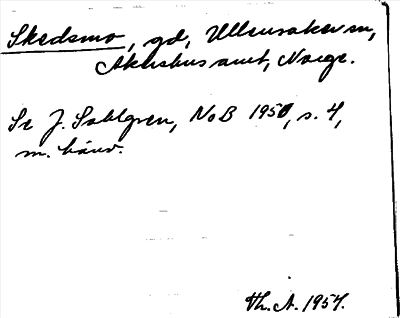 Skedsmo, gd, Ullensaker sn,
Akershus amt, Norge.
Se J. Sahlgren, NoB 1950, s. 4,
m. hänv.
Th. A. 1957.